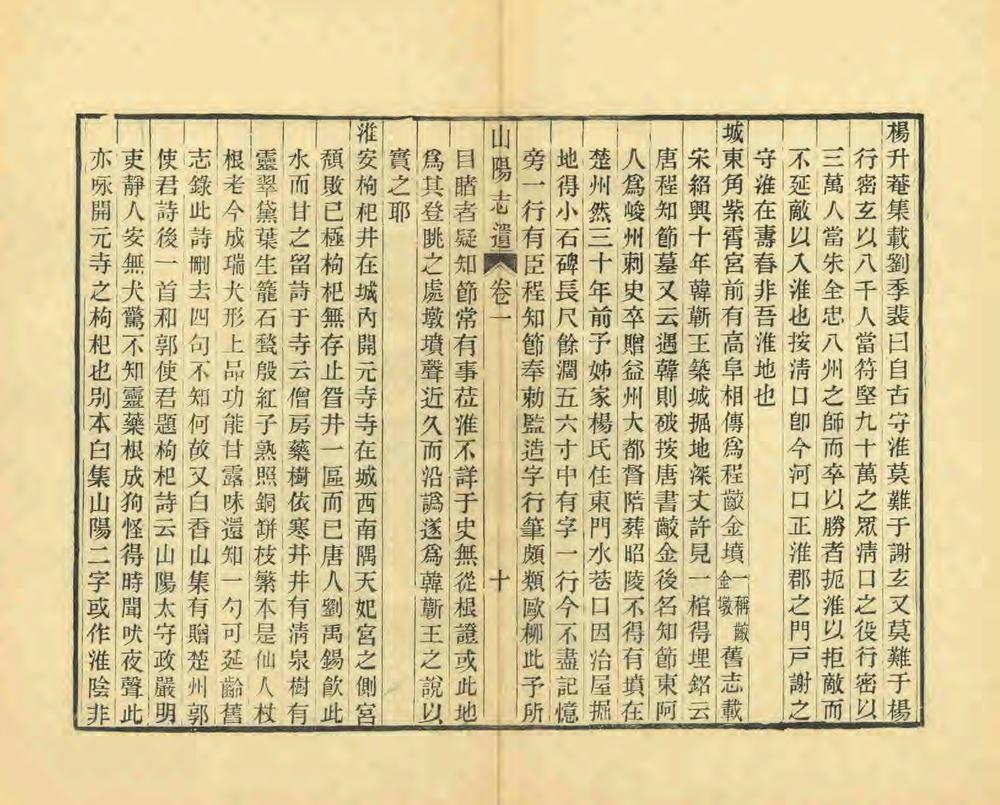 楊升菴集載劉季裴曰自古守淮莫難于謝玄又莫難于楊
行密玄以八千人當符堅九十萬之眾清口之役行密以
三萬人當朱全忠八州之師而卒以勝者扼淮以拒敵而
不延敵以入淮也按清口卽今河口正淮郡之門戸謝之
守淮在壽春非吾淮地也
城東角紫霄宮前有高阜相傳爲程齩金墳一稱齩金墩舊志載
宋紹興十年韓蘄王築城掘地深丈許見一棺得埋銘云
唐程知節墓又云遇韓則破按唐書齩金後名知節東阿
人爲峻州刺史卒贈益州大都督陪葬昭陵不得有墳在
楚州然三十年前予姊家楊氏住東門水巷口因治屋掘
地得小石碑長尺餘濶五六寸中有字一行今不盡記憶
旁一行有臣程知節奉勅監造字行筆頗類歐柳此予所
山陽志遺 卷一 十
目睹者疑知節常有事莅淮不詳于史無從根證或此地
爲其登眺之處墩墳聲近久而沿譌遂爲韓蘄王之說以
實之耶
淮安枸杞井在城內開元寺寺在城西南隅天妃宮之側宮
頹敗已極枸杞無存止眢井一區而已唐人劉禹錫飮此
水而甘之留詩于寺云僧房藥樹依寒井井有清泉樹有
靈翠黛葉生籠石甃殷紅子熟照銅缾枝繁本是仙人杖
根老今成瑞犬形上品功能甘露味還知一勺可延齡舊
志錄此詩刪去四句不知何故又白香山集有贈楚州郭
使君詩後一首和郭使君題枸杞詩云山陽太守政嚴明
吏靜人安無犬驚不知靈藥根成狗怪得時聞吠夜聲此
亦咏開元寺之枸杞也別本白集山陽二字或作淮陰非